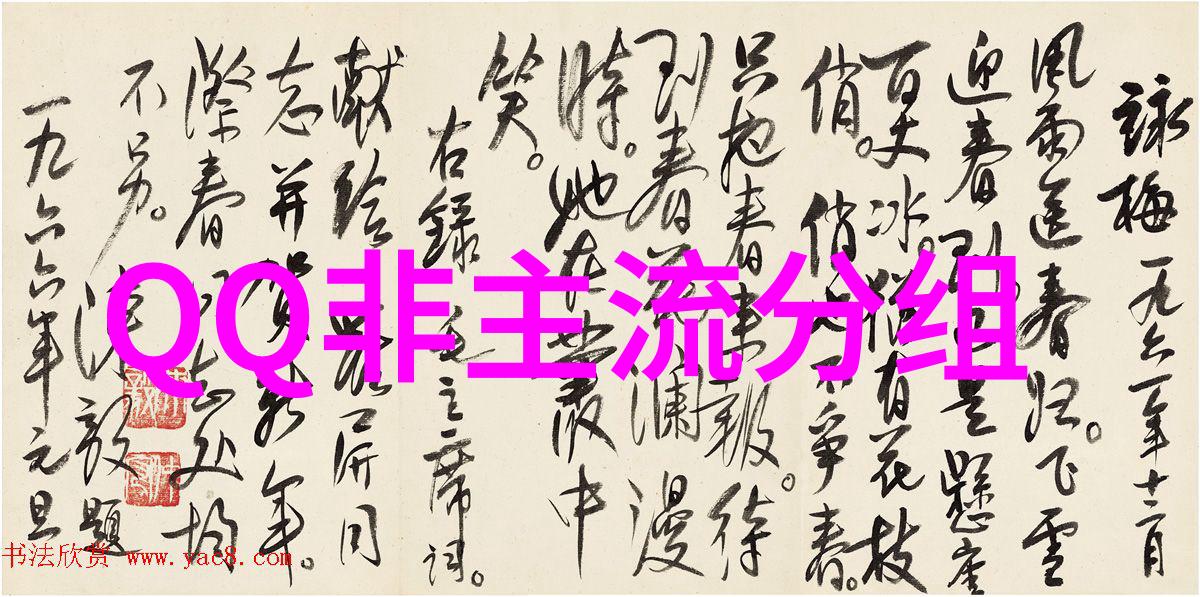 詠梅 一九六一年十二月
风雨送春归。飞雪
迎春到。已是懸崖
百丈冰。犹有花枝
俏。俏也不争春。
只把春来報。待
到春花瀾漫
時。她在丛中
笑。
右録毛主席词。
献给
志并贺新年。
際春
不另。
一九六六年元旦
QQ非主流分组
书法欣赏 www.yac8.com